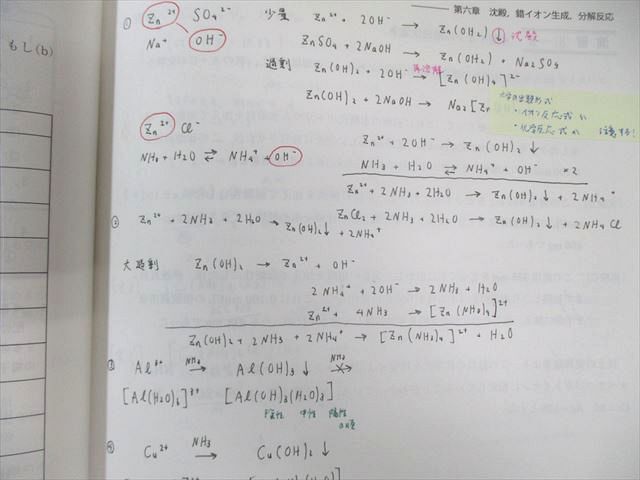 第六章 沈殿，錯イオン生成，分解反応
もし(b)
① Zn²⁺ SO₄²⁻ 少量 Zn²⁺ + 2OH⁻ → Zn(OH₂)↓ 沈殿
Na⁺ OH⁻ ZnSO₄ + 2NaOH → Zn(OH₂)↓ + Na₂SO₄
過剰 Zn(OH)₂ + 2OH⁻ 再溶解 → [Zn(OH)₄]²⁻
Zn(OH)₂ + 2NaOH → Na₂[Zn
・イオン反応式 い
・化学反応式 か 注意する!
Zn²⁺ Cl⁻ Zn²⁺ + 2OH⁻ → Zn(OH)₂↓
NH₃ + H₂O ⇄ NH₄⁺ + OH⁻ NH₃ + H₂O ⇄ NH₄⁺ + OH⁻ ×2
Zn²⁺ + 2NH₃ + 2H₂O → Zn(OH)₂↓ + 2NH₄⁺
② Zn²⁺ + 2NH₃ + 2H₂O → Zn(OH)₂↓ + 2NH₄⁺ ZnCl₂ + 2NH₃ + 2H₂O → Zn(OH)₂↓ + 2NH₄Cl
大過剰 Zn(OH)₂ → Zn²⁺ + OH⁻
2NH₄⁺ + 2OH⁻ → 2NH₃ + H₂O
Zn²⁺ + 4NH₃ → [Zn(NH₃)₄]²⁺
Zn(OH)₂ + 2NH₃ + 2NH₄⁺ → [Zn(NH₃)₄]²⁺ + H₂O
③ Al³⁺ NH₃ → Al(OH)₃↓ NH₃ →
[Al(H₂O)₆]³⁺ [Al(OH)₃(H₂O)₃]
陰性 中性 陽性
の順
④ Cu²⁺ NH₃ → Cu(OH)₂↓